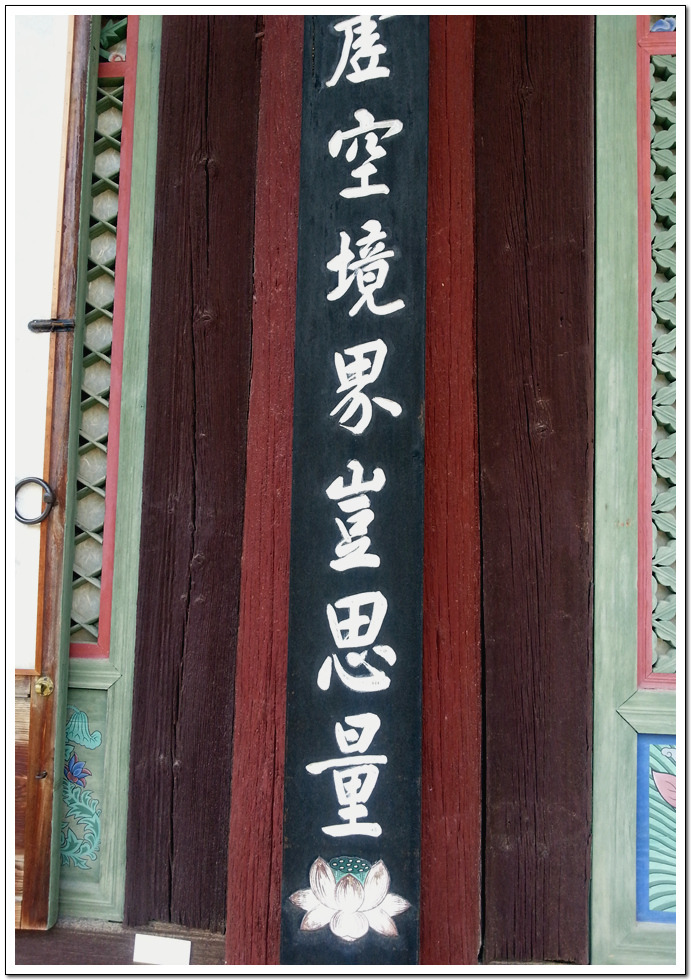 虛空境界豈思量